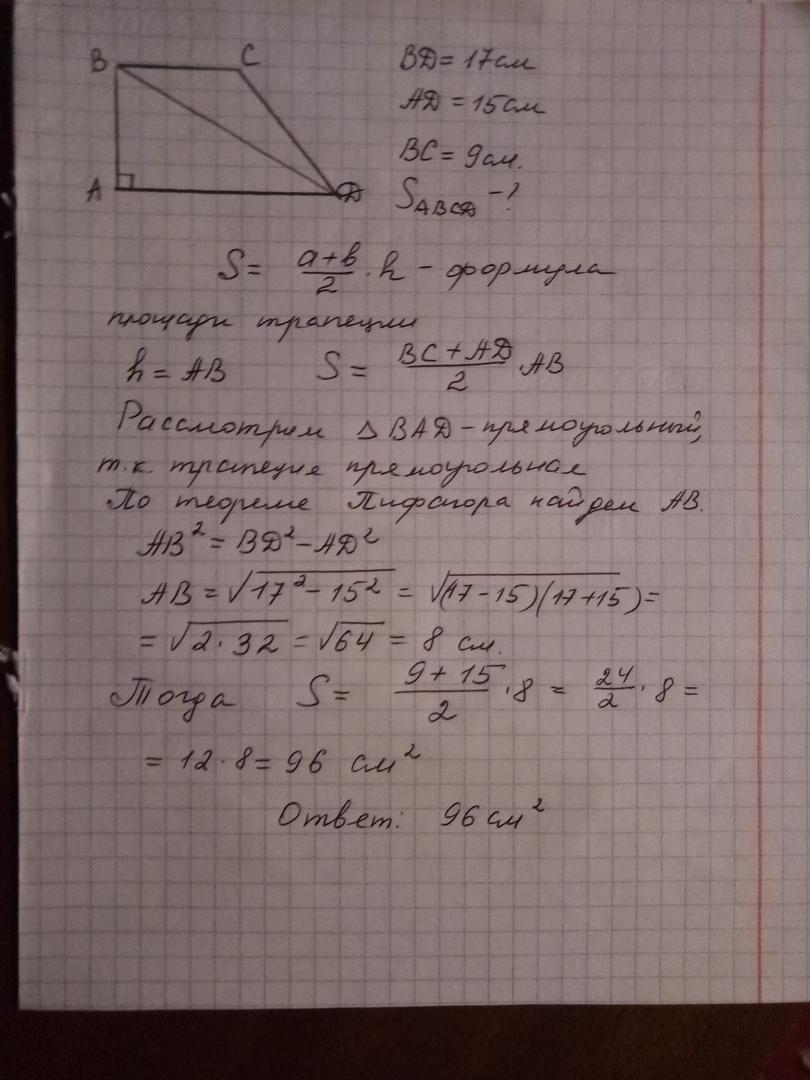 B C
A D
BD = 17 см
AD = 15 см
BC = 9 см.
S_ABCD - ?
S = (a+b)/2 · h - формула
площади трапеции
h = AB S = (BC + AD)/2 · AB
Рассмотрим △ BAD - прямоугольный,
т.к. трапеция прямоугольная
По теореме Пифагора найдем AB.
AB² = BD² - AD²
AB = √(17² - 15²) = √((17-15)(17+15)) =
= √(2·32) = √64 = 8 см.
Тогда S = (9 + 15)/2 · 8 = 24/2 · 8 =
= 12 · 8 = 96 см²
Ответ: 96 см²